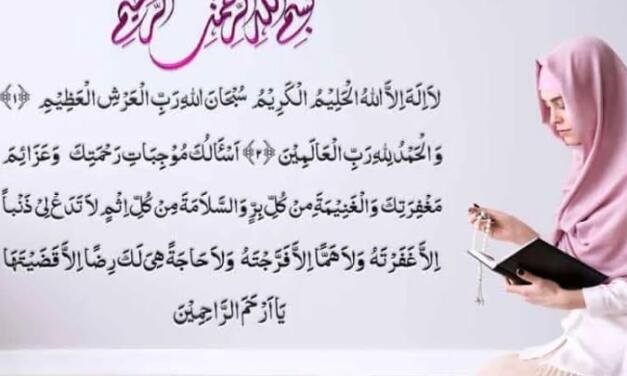 بِسْمِ اللّٰهِ الرَّحْمٰنِ الرَّحِيْمِ
لَا اِلٰهَ اِلَّا اللّٰهُ الْحَلِيْمُ الْكَرِيْمُ سُبْحَانَ اللّٰهِ رَبِّ الْعَرْشِ الْعَظِيْمِ ﴿۱﴾
وَالْحَمْدُ لِلّٰهِ رَبِّ الْعَالَمِيْنَ ﴿۲﴾ اَسْأَلُكَ مُوْجِبَاتِ رَحْمَتِكَ وَعَزَائِمَ
مَغْفِرَتِكَ وَالْغَنِيْمَةَ مِنْ كُلِّ بِرٍّ وَالسَّلَامَةَ مِنْ كُلِّ اِثْمٍ لَا تَدَعْ لِيْ ذَنْباً
اِلَّا غَفَرْتَهُ وَلَا هَمًّا اِلَّا فَرَّجْتَهُ وَلَا حَاجَةً هِىَ لَكَ رِضًا اِلَّا قَضَيْتَهَا
يَا اَرْحَمَ الرَّاحِمِيْنَ